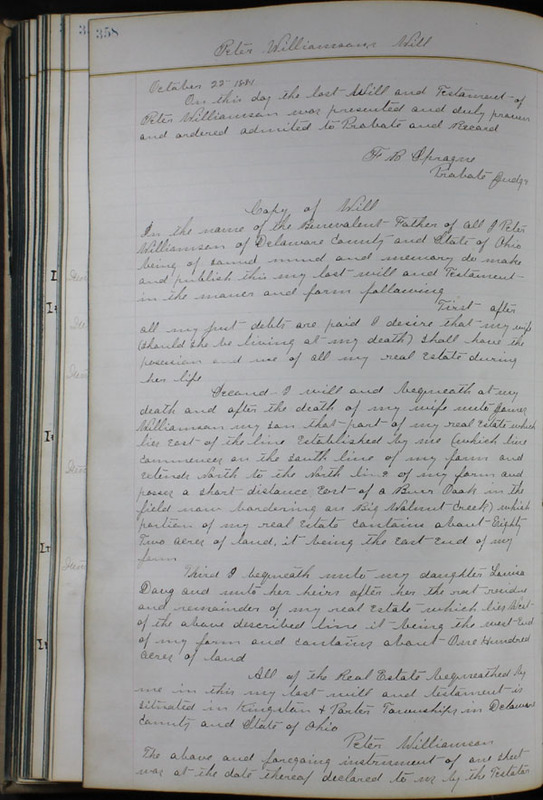 358
Peter Williamson's Will
October 22 1881
On this day the last Will and Testament of
Peter Williamson was presented and duly proven
and ordered admitted to Probate and Record
F B Sprague
Probate Judge
Copy of Will
In the name of the Benevolent Father of all I Peter
Williamson of Delaware County and State of Ohio
being of sound mind and memory do make
and publish this my last will and Testament
in the maner and form following
First after
all my just debts are paid I desire that my wife
(should she be living at my death) shall have the
possession and use of all my real Estate during
her life
Second I will and bequeath at my
death and after the death of my wife unto James
Williamson my son that part of my real Estate which
lies East of the line Established by me (which line
commences on the South line of my farm and
extends North to the North line of my farm and
passes a short distance East of a Burr Oak in the
field now bordering on Big Walnut Creek) which
portion of my real Estate contains about Eighty
Two acres of land, it being the East End of my
farm
Third I bequeath unto my daughter Louisa
and unto her heirs after her the rest residue
and remainder of my real Estate which lies West
of the above described line it being the west End
of my farm and contains about One Hundred
acres of land
All of the Real Estate bequeathed by
me in this my last will and testament is
situated in Kingston & Porter Townships in Delaware
County and State of Ohio
Peter Williamson
The above and foregoing instrument of one sheet
was at the date thereof declared to us by the Testator